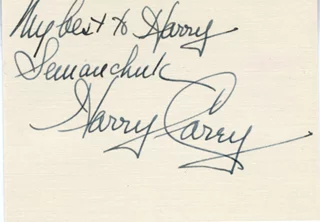 My best to Harry
Semanchuk
Harry Carey